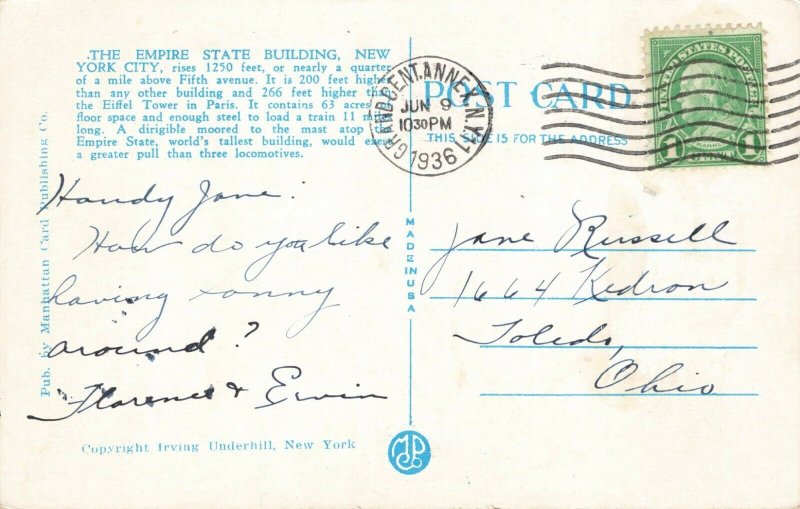 THE EMPIRE STATE BUILDING, NEW
YORK CITY, rises 1250 feet, or nearly a quarter
of a mile above Fifth avenue. It is 200 feet higher
than any other building and 266 feet higher than
the Eiffel Tower in Paris. It contains 63 acres
floor space and enough steel to load a train 11 miles
long. A dirigible moored to the mast atop
Empire State, world's tallest building, would exert
a greater pull than three locomotives.
Handy Jane:
How do you like
having sonny
around?
Florence & Ervin
Copyright Irving Underhill, New York
Pub. by Manhattan Card Publishing Co.
MADE IN USA
GRAND CENT. ANNEX N.Y.
JUN 9
1030PM
1936
POST CARD
THIS SIDE IS FOR THE ADDRESS
UNITED STATES POSTAGE
FRANKLIN
1 CENT 1
Jane Russell
1664 Kedron
Toledo,
Ohio